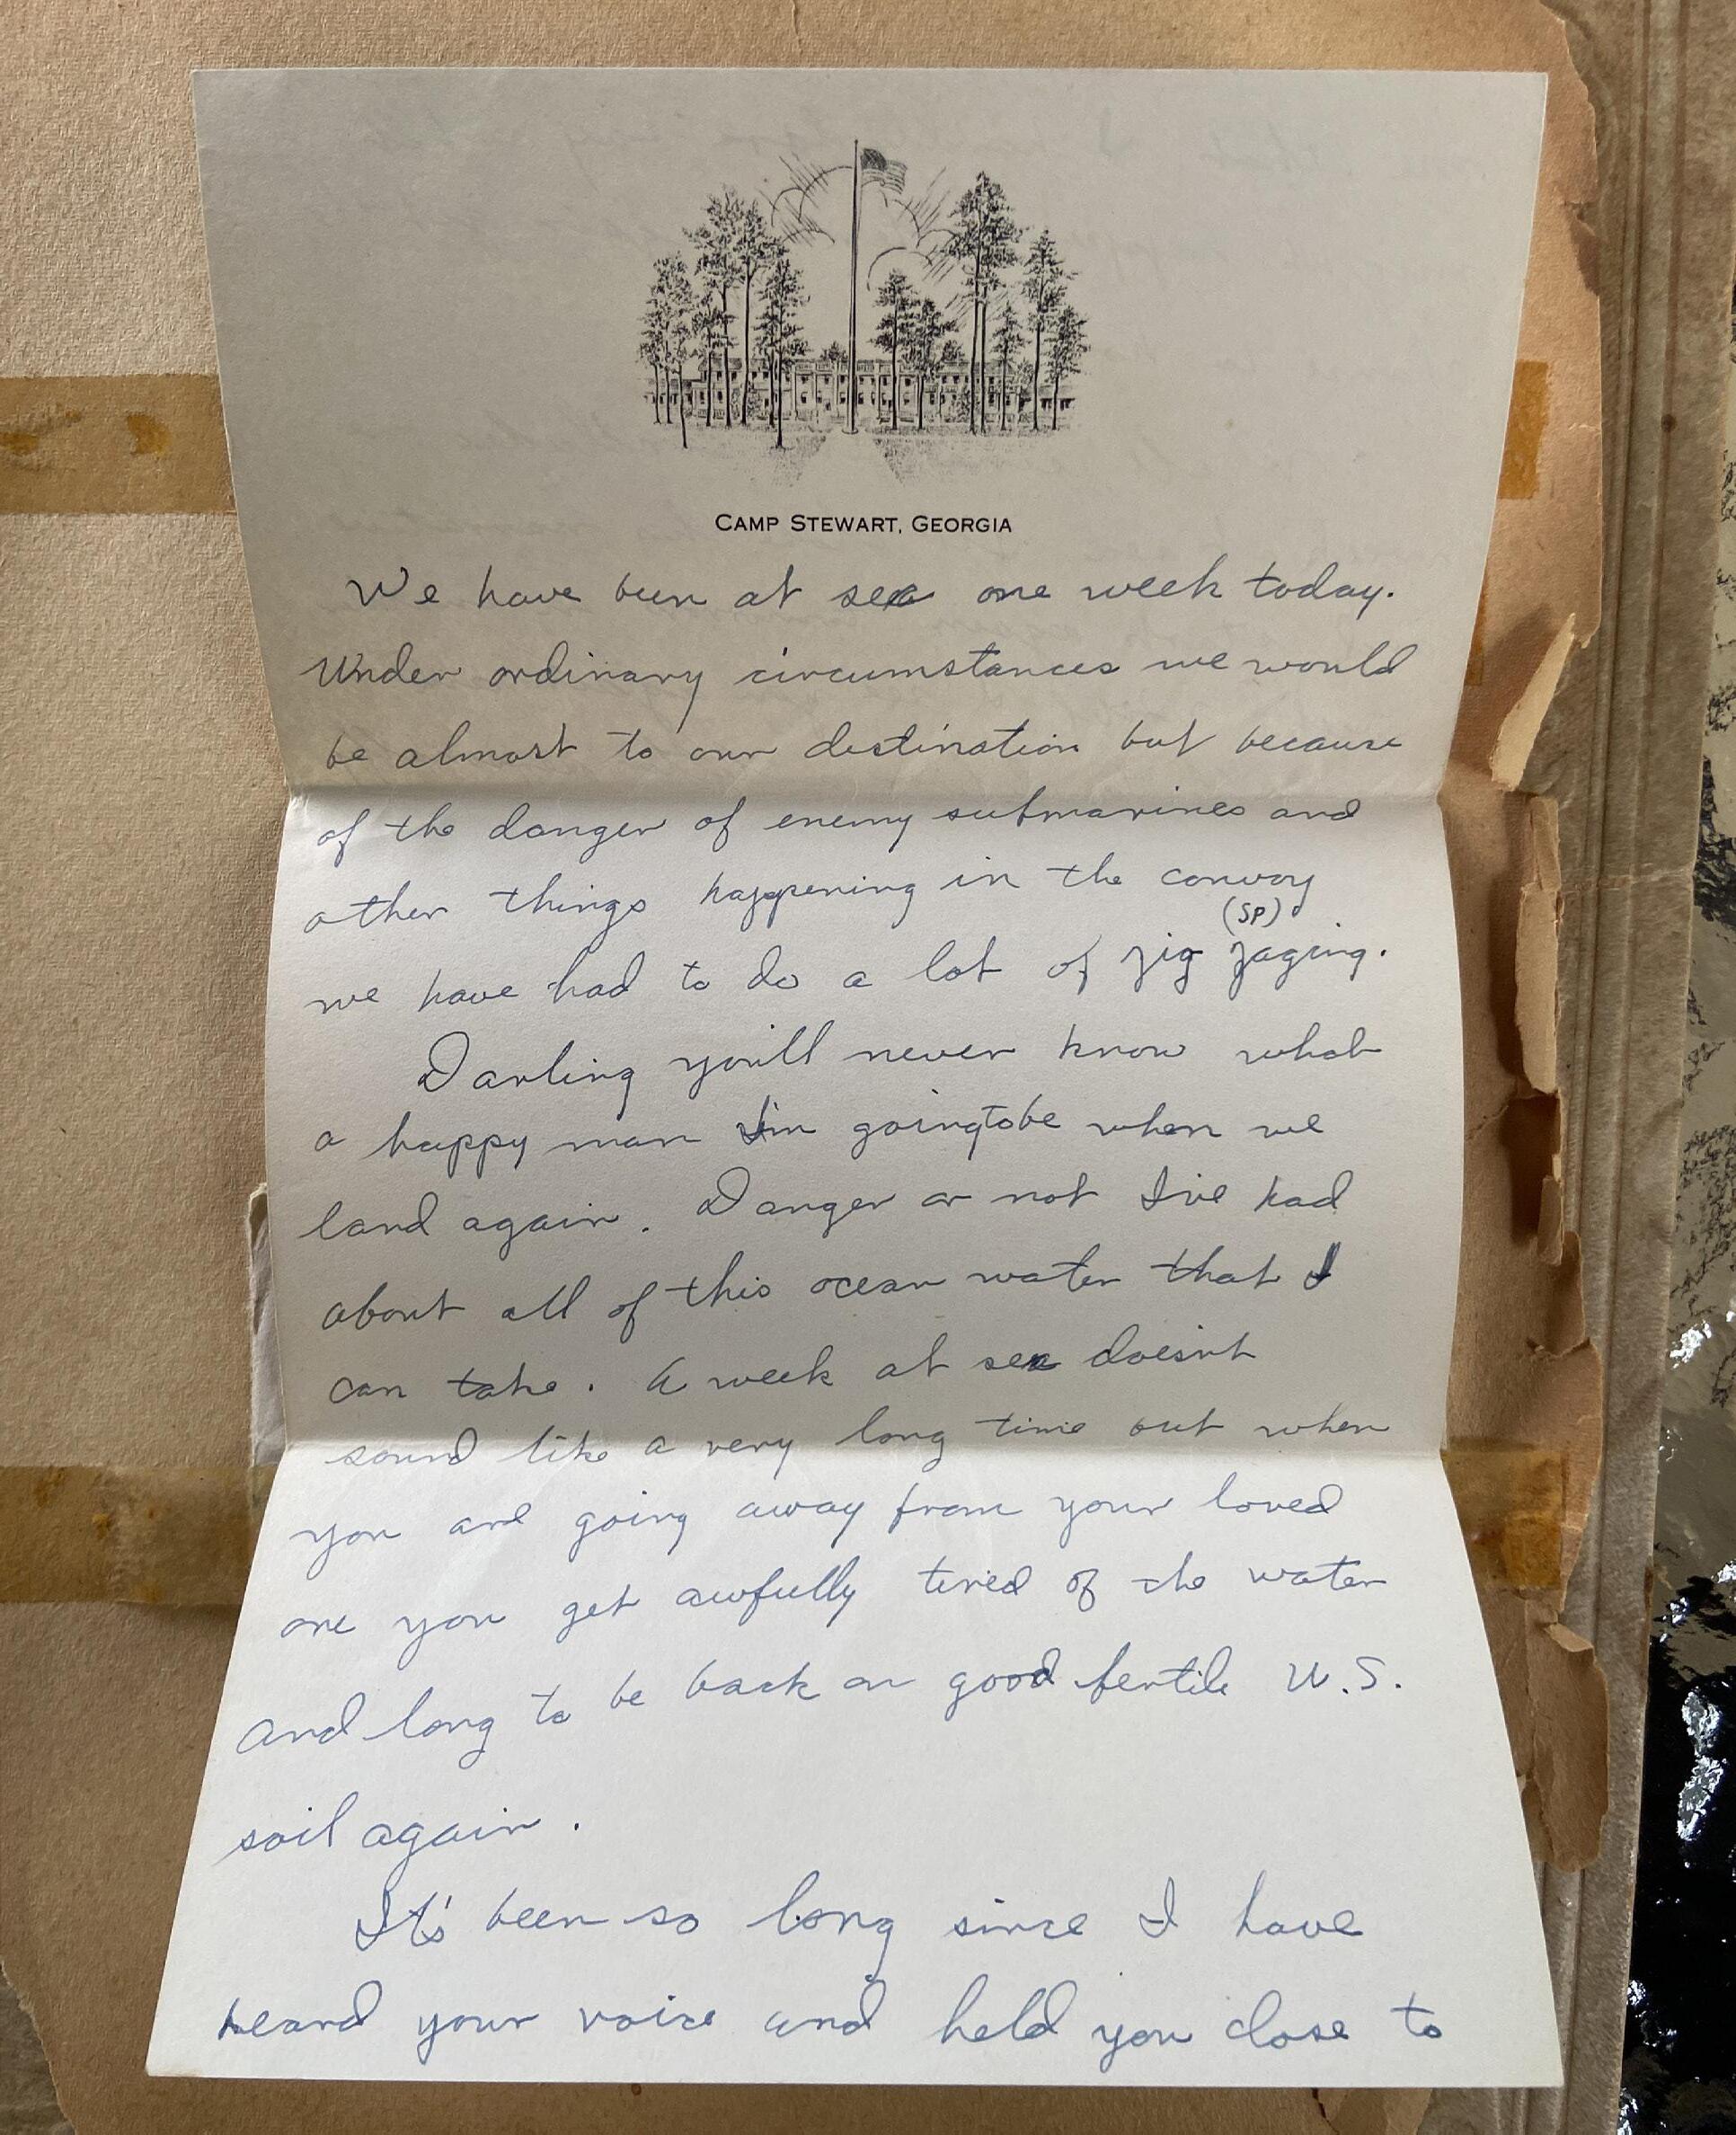 CAMP STEWART, GEORGIA
We have been at sea one week today.
Under ordinary circumstances we would
be almost to our destination but because
of the danger of enemy submarines and
other things happening in the convoy
(SP)
we have had to do a lot of zig zaging.
Darling you'll never know what
a happy man I'm going to be when we
land again. Danger or not I've had
about all of this ocean water that I
can take. A week at sea doesn't
sound like a very long time but when
you are going away from your loved
one you get awfully tired of the water
and long to be back on good fertile U.S.
soil again.
It's been so long since I have
heard your voice and held you close to